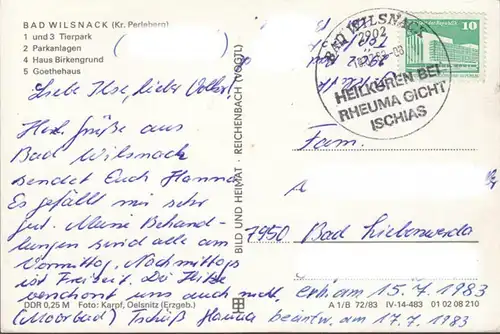 BAD WILSNACK (Kr. Perleberg)
1 und 3 Tierpark
2 Parkanlagen
4 Haus Birkengrund
5 Goethehaus
Liebe Ilse, lieber Volker!
Herzl. Grüße aus
Bad Wilsnack
sendet Euch Hanna
Es gefällt mir sehr
gut. Meine Behand-
lungen sind alle am
Vormittag, Nachmittags
ist Freizeit. Die Hitze
verschont uns auch nicht.
(Moorbad) Tschüß Hanna
DDR 0,25 M Foto: Karpf, Oelsnitz (Erzgeb.)
BILD UND HEIMAT · REICHENBACH (VOGTL)
BAD WILSNACK
2902
HEILKUREN BEI
RHEUMA GICHT
ISCHIAS
10
Fam.
7950 Bad Liebenwerda
A 1/B 72/83 IV-14-483 01 02 08 210
erh. am 15.7.1983
beantw. am 17.7.1983